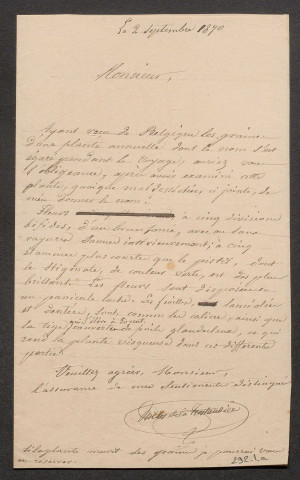 Le 2 septembre 1890
Monsieur,
Ayant reçu de Belgique les graines
d'une plante annuelle dont le nom s'est
égaré pendant le voyage, auriez vous
l'obligeance, après avoir examiné cette
plante, quoique mal desséchée, ci jointe, de
m'en donner le nom?
Fleurs à cinq divisions
bifides, d'un brun foncé, avec ou sans
rayures jaunes intérieurement, à cinq
étamines plus courtes que le pistil, dont
le stigmate, de couleur verte, est des plus
brillants. Les fleurs sont disposées
en panicule lâche. Les feuilles, lancéolées
et dentées, sont, comme le calice, ainsi que
la tige, couvertes de poils glanduleux, ce qui
rend la plante visqueuse dans ses différentes
parties.
Veuillez agréer, Monsieur,
l'assurance de mes sentiments distingués
si la plante murit ses graines je pourrai vous
en réserver.
292.1a